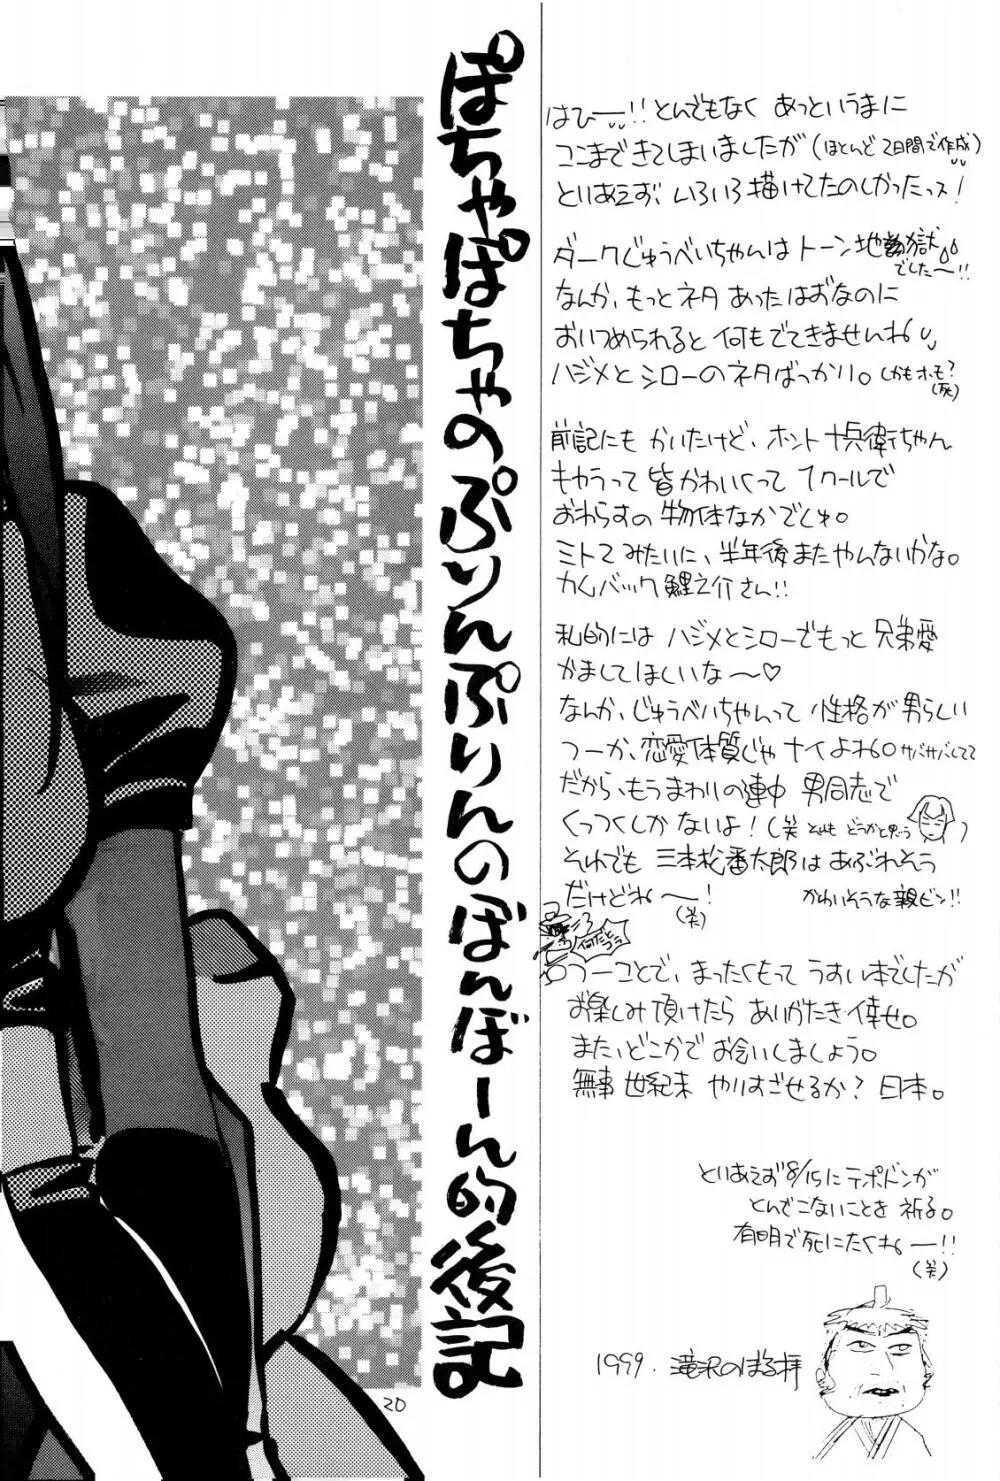 ぽちゃぽちゃのぷりんぷりんのぼんぼーん的後記
はひー!! とんでもなく あっというまに
ココまできてしまいましたが (ほとんど 2日間で作成)
とりあえず、いろいろ描けてたのしかったっス!
ダークじゅうべいちゃんは トーン地獄
でした〜!!
なんか、もっとネタ あったはずなのに
おいつめられると 何もでてきませんね
ハジメとシローのネタばっかり。(しかもホモ?
(死)
前記にも かいたけど、ホント 十兵衛ちゃん
キャラって 皆かわいくって 1クールで
おわらすの 勿体なかでしゅ。
ミトてみたいに、半年後またやんないかな。
カムバック 鯉之介さん!!
私的には ハジメとシローでもっと 兄弟愛
かましてほしいな 〜♡
なんか、じゅうべいちゃんって 性格が男らしい
つーか、恋愛体質じゃナイよね。サバサバしてて
だから、もうまわりの連中 男同志で
くっつくしか ないよ! (笑 それも どうかと思う )
それでも 三本松番太郎は あぶれそう
だけどね 〜! かわいそうな親ビン!!
(笑)
何だとっ
つーコトで、まったくもって うすい本でしたが
お楽しみ頂けたら ありがたき倖せ。
また、どこかで お会いしましょう。
無事 世紀末 やりすごせるか? 日本。
とりあえず 8/15に テポドンが
とんでこないことを 祈る。
有明で死にたくねー!!
(笑)
1999. 滝沢のぼる拝
20